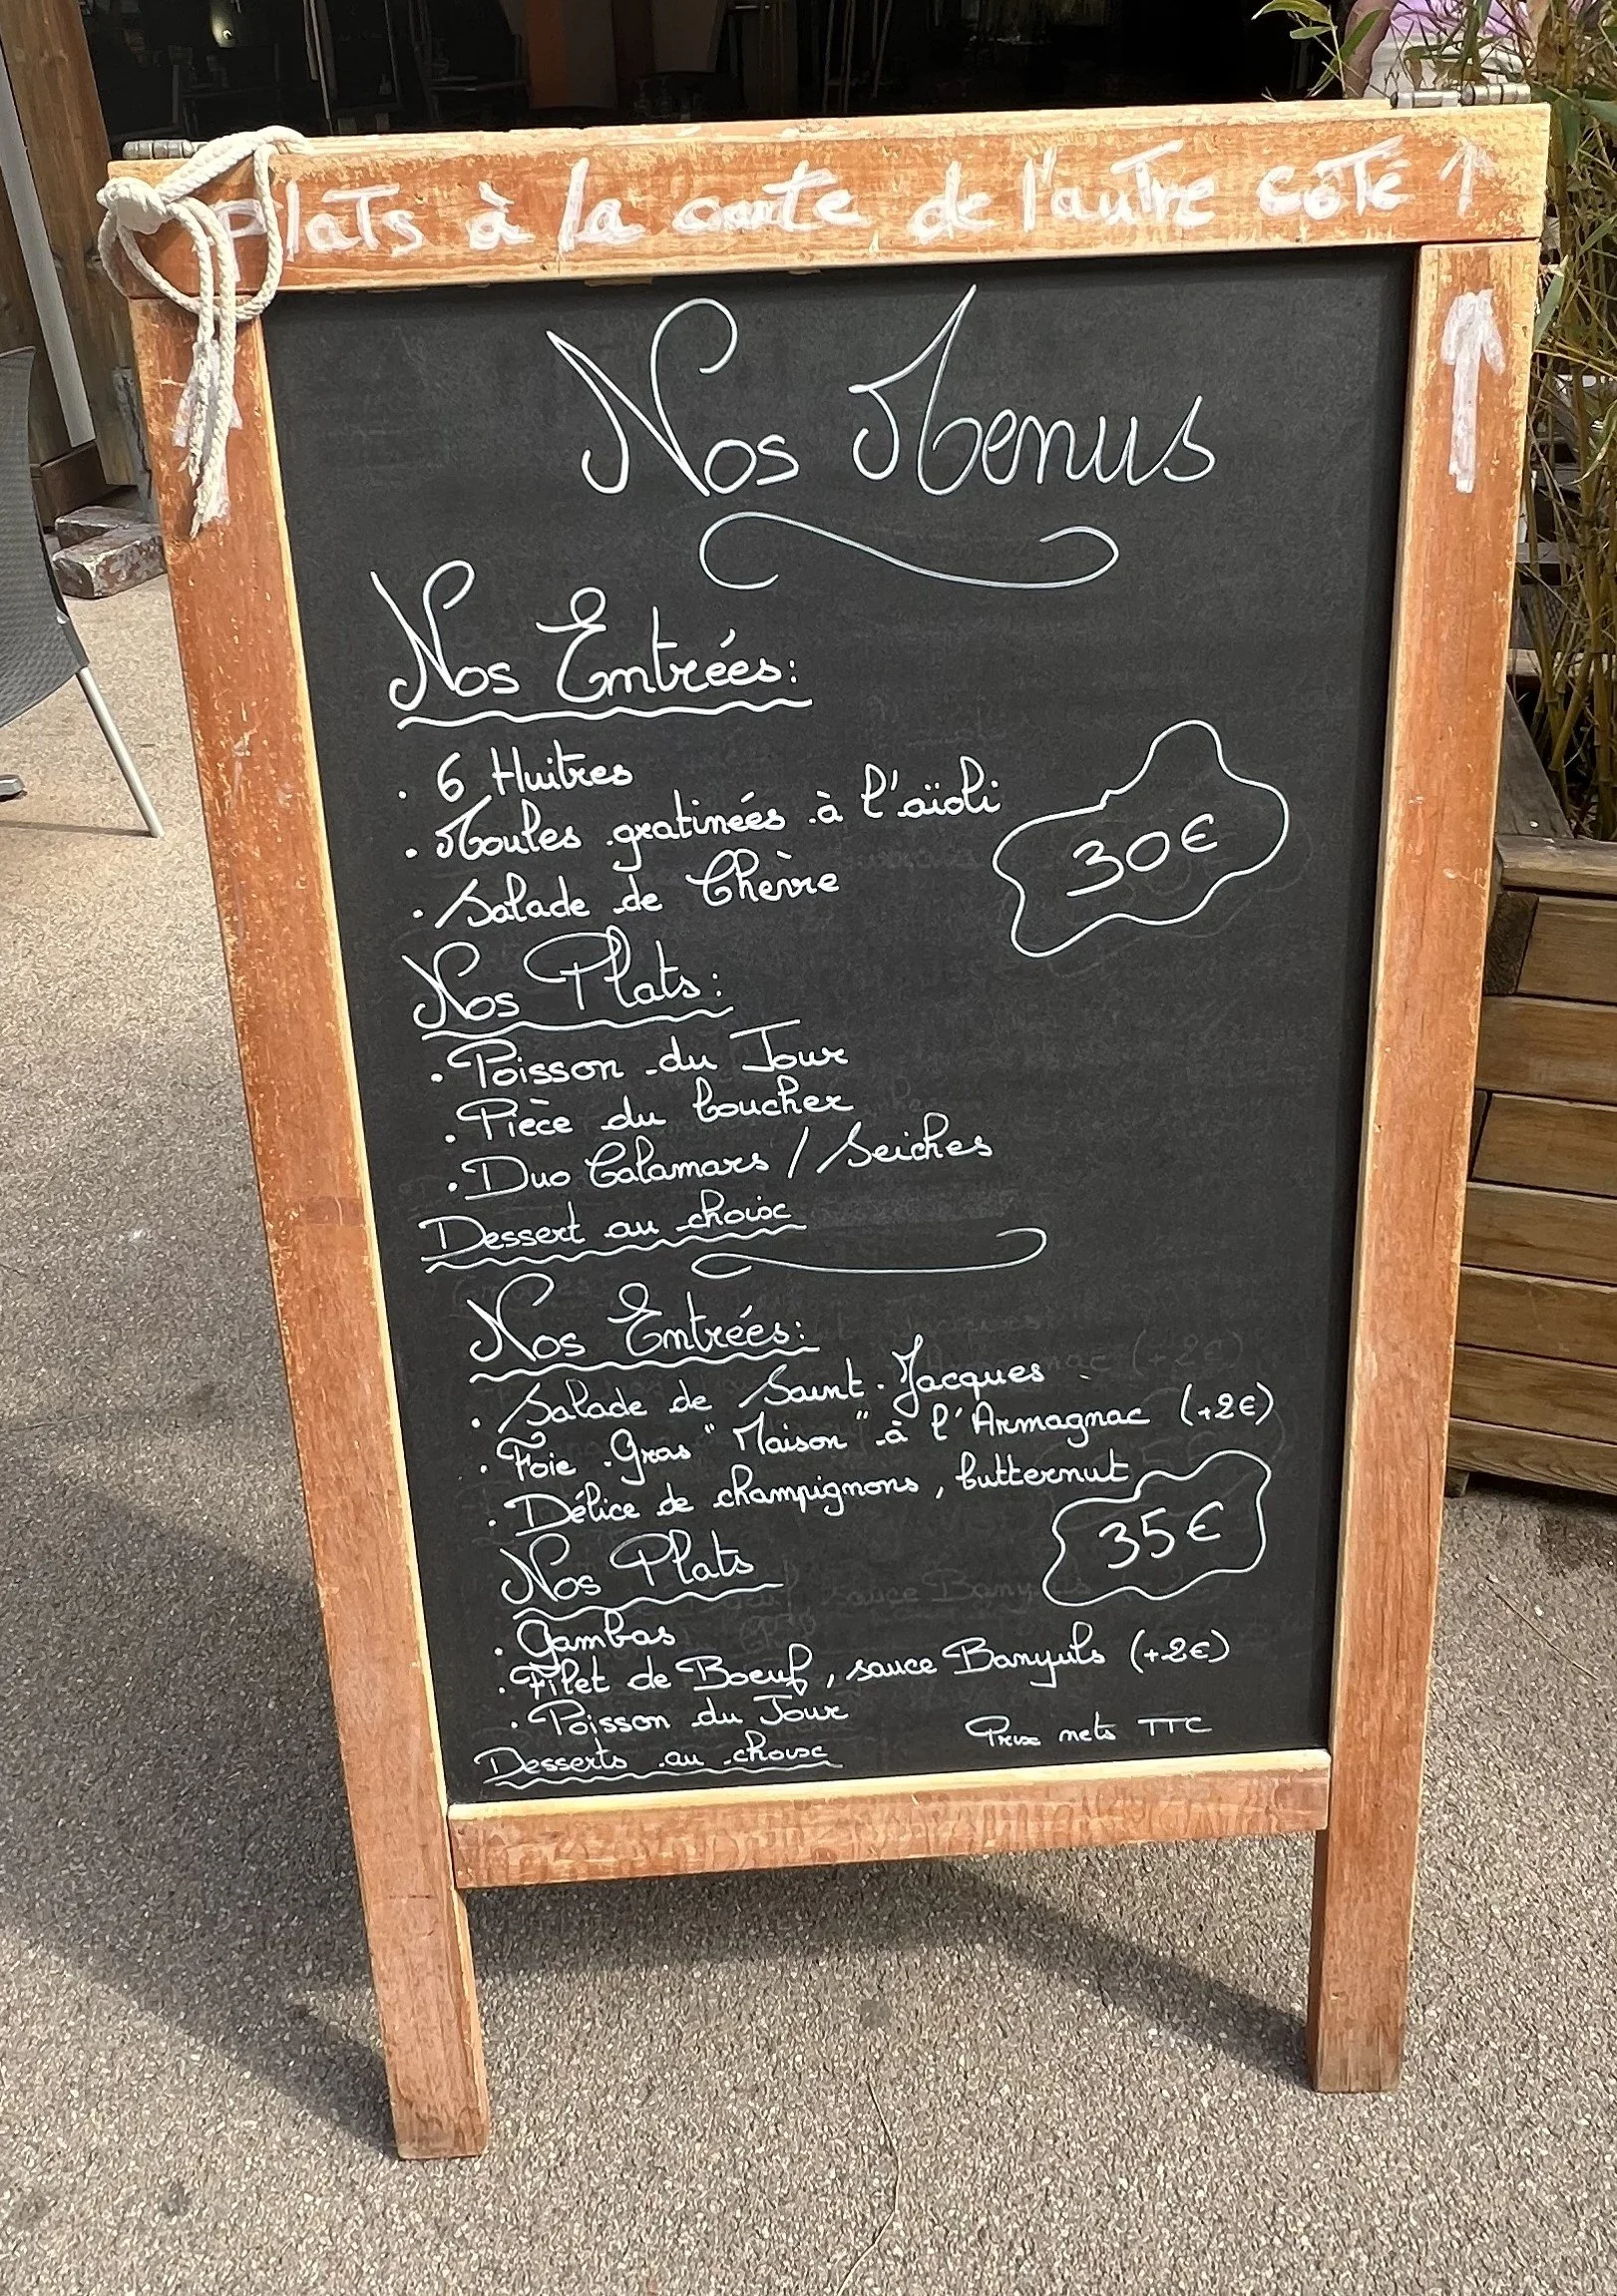 Plats à la carte de l'autre côté ↑
Nos Menus
Nos Entrées:
. 6 Huitres
. Moules gratinées à l'aïoli
30€
. Salade de Chèvre
Nos Plats:
. Poisson du Jour
. Pièce du boucher
. Duo Calamars / Seiches
Dessert au choix
Nos Entrées:
. Salade de Saint-Jacques
. Foie Gras "Maison" à l'Armagnac (+2€)
. Délice de champignons, butternut
35€
Nos Plats
. Gambas
. Filet de Boeuf, sauce Banyuls (+2€)
. Poisson du Jour
Prix nets TTC
Desserts au choix